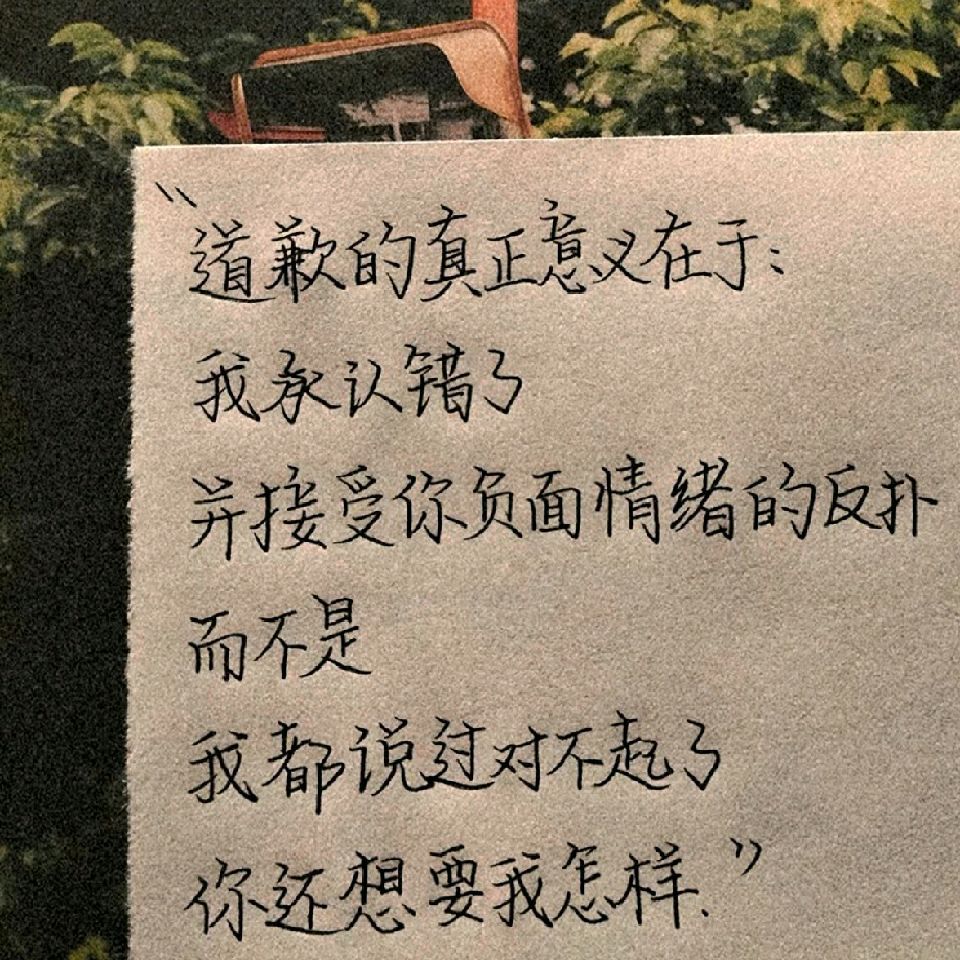 “道歉的真正意义在于：
我承认错了
并接受你负面情绪的反扑
而不是
我都说过对不起了
你还想要我怎样.”